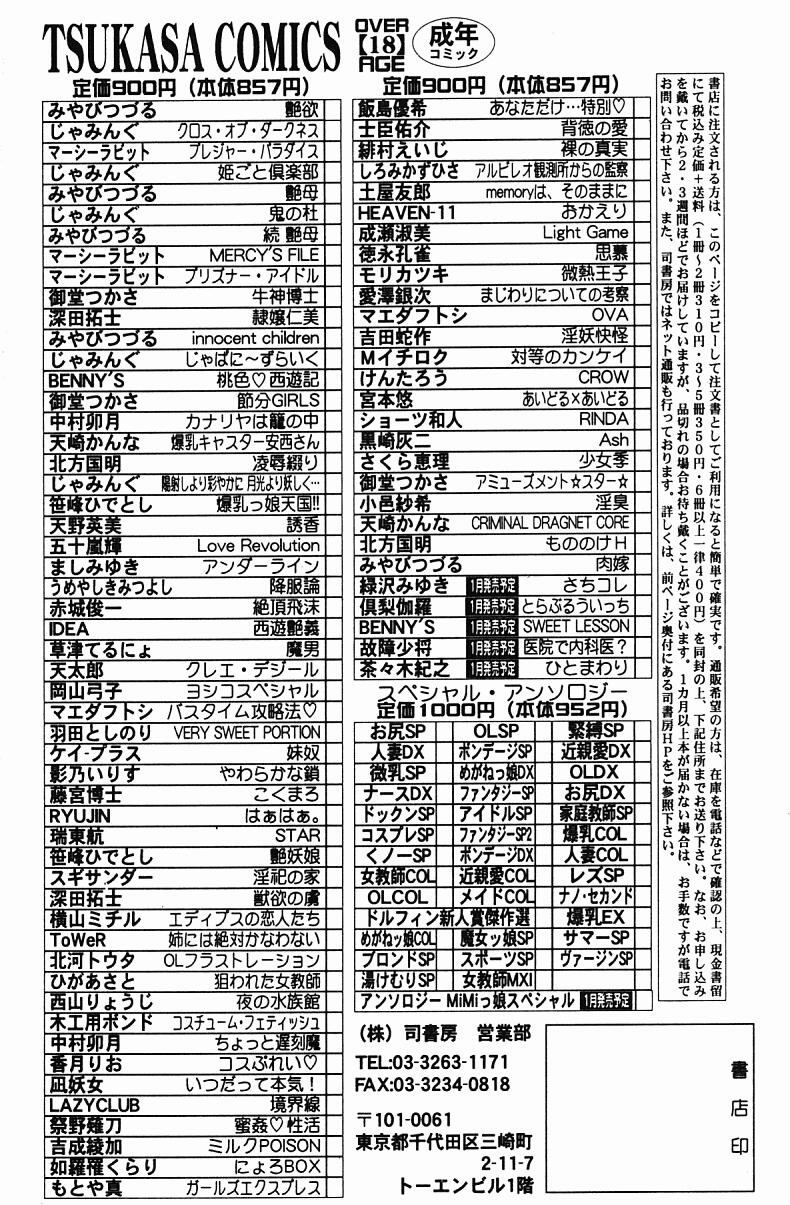 TSUKASA COMICS OVER【18】AGE 成年コミック
定価900円（本体857円）
みやびつづる 艶欲
じゃみんぐ クロス・オブ・ダークネス
マーシーラビット プレジャー・パラダイス
じゃみんぐ 姫ごと倶楽部
みやびつづる 艶母
じゃみんぐ 鬼の杜
みやびつづる 続 艶母
マーシーラビット MERCY'S FILE
マーシーラビット プリズナー・アイドル
御堂つかさ 牛神博士
深田拓士 隷嬢仁美
みやびつづる innocent children
じゃみんぐ じゃぱに〜ずらいく
BENNY'S 桃色♡西遊記
御堂つかさ 節分GIRLS
中村卯月 カナリヤは籠の中
天崎かんな 爆乳キャスター安西さん
北方国明 凌辱綴り
じゃみんぐ 陽射しより彩やかに 月光より妖しく…
笹峰ひでとし 爆乳っ娘天国!!
天野英美 誘香
五十嵐輝 Love Revolution
ましみゆき アンダーライン
うめやしきみつよし 降服論
赤城俊一 絶頂飛沫
IDEA 西遊艶義
草津てるにょ 魔男
天太郎 クレエ・デジール
岡山弓子 ヨシコスペシャル
マエダフトシ バスタイム攻略法♡
羽田としのり VERY SWEET PORTION
ケイ-プラス 妹奴
影乃いりす やわらかな鎖
藤宮博士 こくまろ
RYUJIN はぁはぁ。
瑞東航 STAR
笹峰ひでとし 艶妖娘
スギサンダー 淫祀の家
深田拓士 獣欲の虜
横山ミチル エディプスの恋人たち
ToWeR 姉には絶対かなわない
北河トウタ OLフラストレーション
ひがあさと 狙われた女教師
西山りょうじ 夜の水族館
木工用ボンド コスチューム・フェティッシュ
中村卯月 ちょっと遅刻魔
香月りお コスぷれい♡
凪妖女 いつだって本気！
LAZYCLUB 境界線
祭野薙刀 蜜姦♡性活
吉成綾加 ミルクPOISON
如羅罹くらり にょろBOX
もとや真 ガールズエクスプレス
定価900円（本体857円）
飯島優希 あなただけ…特別♡
士臣佑介 背徳の愛
緋村えいじ 裸の真実
しろみかずひさ アルビレオ観測所からの監察
土屋友郎 memoryは、そのままに
HEAVEN-11 おかえり
成瀬淑美 Light Game
徳永孔雀 思慕
モリカツキ 微熱王子
愛澤銀次 まじわりについての考察
マエダフトシ OVA
吉田蛇作 淫妖快怪
Mイチロク 対等のカンケイ
けんたろう CROW
宮本悠 あいどる×あいどる
ショーツ和人 RINDA
黒崎灰二 Ash
さくら恵理 少女季
御堂つかさ アミューズメント☆スター☆
小邑紗希 淫臭
天崎かんな CRIMINAL DRAGNET CORE
北方国明 もののけH
みやびつづる 肉嫁
緑沢みゆき 1月発売予定 さちコレ
倶梨伽羅 1月発売予定 とらぶるういっち
BENNY'S 1月発売予定 SWEET LESSON
故障少将 1月発売予定 医院で内科医？
茶々木紀之 1月発売予定 ひとまわり
スペシャル・アンソロジー
定価1000円（本体952円）
お尻SP OLSP 緊縛SP
人妻DX ボンデージSP 近親愛DX
微乳SP めがねっ娘DX OLDX
ナースDX ファンタジーSP お尻DX
ドックンSP アイドルSP 家庭教師SP
コスプレSP ファンタジーSP2 爆乳COL
くノーSP ボンデージDX 人妻COL
女教師COL 近親愛COL レズSP
OLCOL メイドCOL ナノ・セカンド
ドルフィン新人賞傑作選 爆乳EX
めがねッ娘COL 魔女ッ娘SP サマーSP
ブロンドSP スポーツSP ヴァージンSP
湯けむりSP 女教師MXI
アンソロジー MiMiっ娘スペシャル 1月発売予定
書店に注文される方は、このページをコピーして注文書としてご利用になると簡単で確実です。通販希望の方は、在庫を電話などで確認の上、現金書留
にて税込み定価＋送料（1冊〜2冊310円・3〜5冊350円・6冊以上一律400円）を同封の上、下記住所までお送り下さい。なお、お申し込み
を戴いてから2・3週間ほどでお届けしていますが、品切れの場合お待ち戴くことがございます。1カ月以上本が届かない場合は、お手数ですが電話で
お問い合わせ下さい。また、司書房ではネット通販も行っております。詳しくは、前ページ奥付にある司書房HPをご参照下さい。
（株）司書房 営業部
TEL:03-3263-1171
FAX:03-3234-0818
〒101-0061
東京都千代田区三崎町
2-11-7
トーエンビル1階
書店印